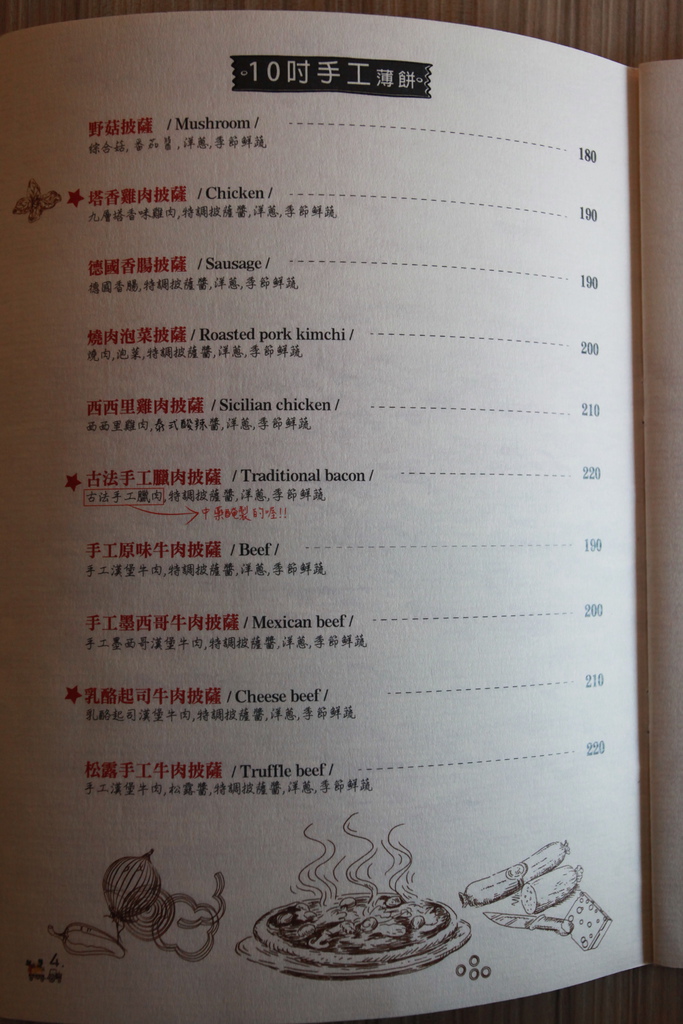 10吋手工薄餅
野菇披薩 / Mushroom / 180
綜合菇,番茄醬,洋蔥,季節鮮蔬
塔香雞肉披薩 / Chicken / 190
九層塔香味雞肉,特調披薩醬,洋蔥,季節鮮蔬
德國香腸披薩 / Sausage / 190
德國香腸,特調披薩醬,洋蔥,季節鮮蔬
燒肉泡菜披薩 / Roasted pork kimchi / 200
燒肉,泡菜,特調披薩醬,洋蔥,季節鮮蔬
西西里雞肉披薩 / Sicilian chicken / 210
西西里雞肉,泰式酸辣醬,洋蔥,季節鮮蔬
古法手工臘肉披薩 / Traditional bacon / 220
古法手工臘肉,特調披薩醬,洋蔥,季節鮮蔬
中藥醃製的喔!!
手工原味牛肉披薩 / Beef / 190
手工漢堡牛肉,特調披薩醬,洋蔥,季節鮮蔬
手工墨西哥牛肉披薩 / Mexican beef / 200
手工墨西哥漢堡牛肉,特調披薩醬,洋蔥,季節鮮蔬
乳酪起司牛肉披薩 / Cheese beef / 210
乳酪起司漢堡牛肉,特調披薩醬,洋蔥,季節鮮蔬
松露手工牛肉披薩 / Truffle beef / 220
手工漢堡牛肉,松露醬,特調披薩醬,洋蔥,季節鮮蔬
4.